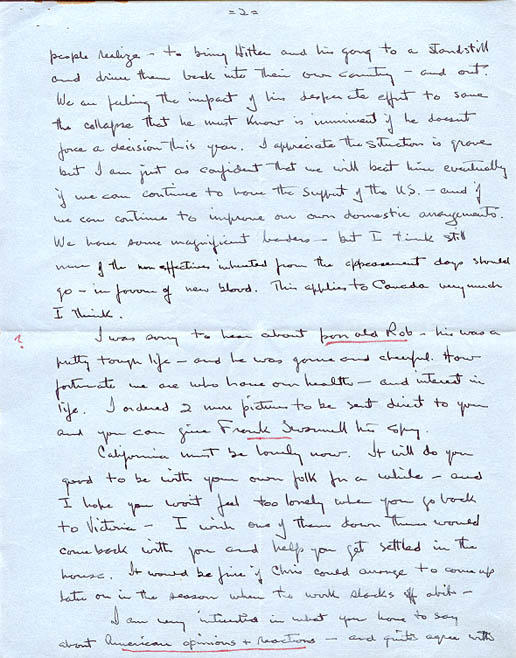 = 2 =
people realize - to bring Hitler and his gang to a standstill
and drive them back into their own country - and out.
We are feeling the impact of his desperate effort to save
the collapse that he must know is imminent if he doesnt
force a decision this year. I appreciate the situation is grave
but I am just as confident that we will beat him eventually
if we can continue to have the support of the U.S. - and if
we can continue to improve our own domestic arrangements.
We have some magnificent leaders - but I think still
more of the non effectives inherited from the appeasement days should
go - in favour of new blood. This applies to Canada very much
I think.
? I was sorry to hear about poor old Rob - his was a
pretty tough life - and he was game and cheerful. How
fortunate we are who have our health - and interest in
life. I ordered 2 more pictures to be sent direct to you
and you can give Frank his copy.
California must be lovely now. It will do you
good to be with your own folk for a while - and
I hope you wont feel too lonely when you go back
to Victoria - I wish one of them down there would
come back with you and help you get settled in the
house. It would be fine if Chris could arrange to come up
late on in the season when the work slacks off abit -
I am very interested in what you have to say
about American opinions + reactions - and quite agree with